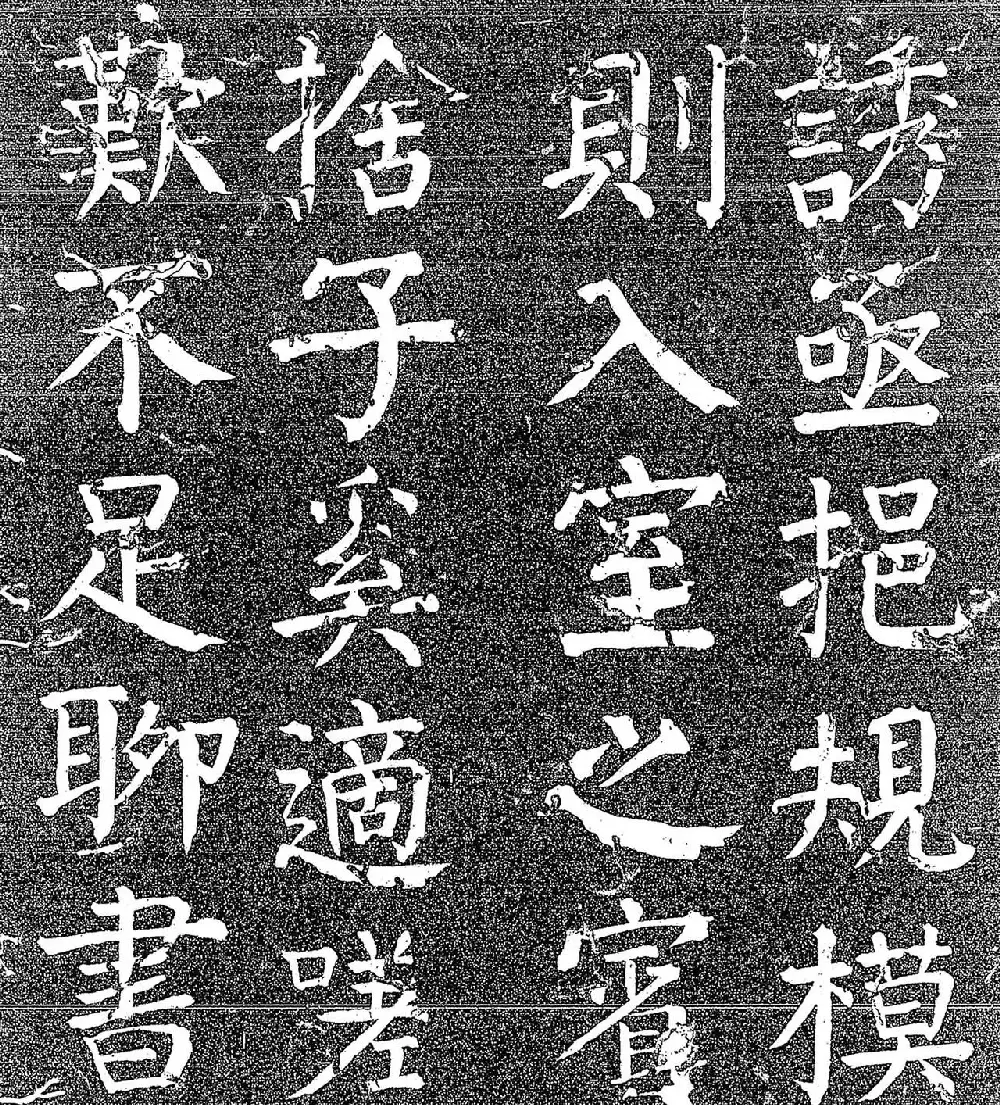 誘亟挹規模
則入室之賓
捨子奚適嗟
歎不足聊書